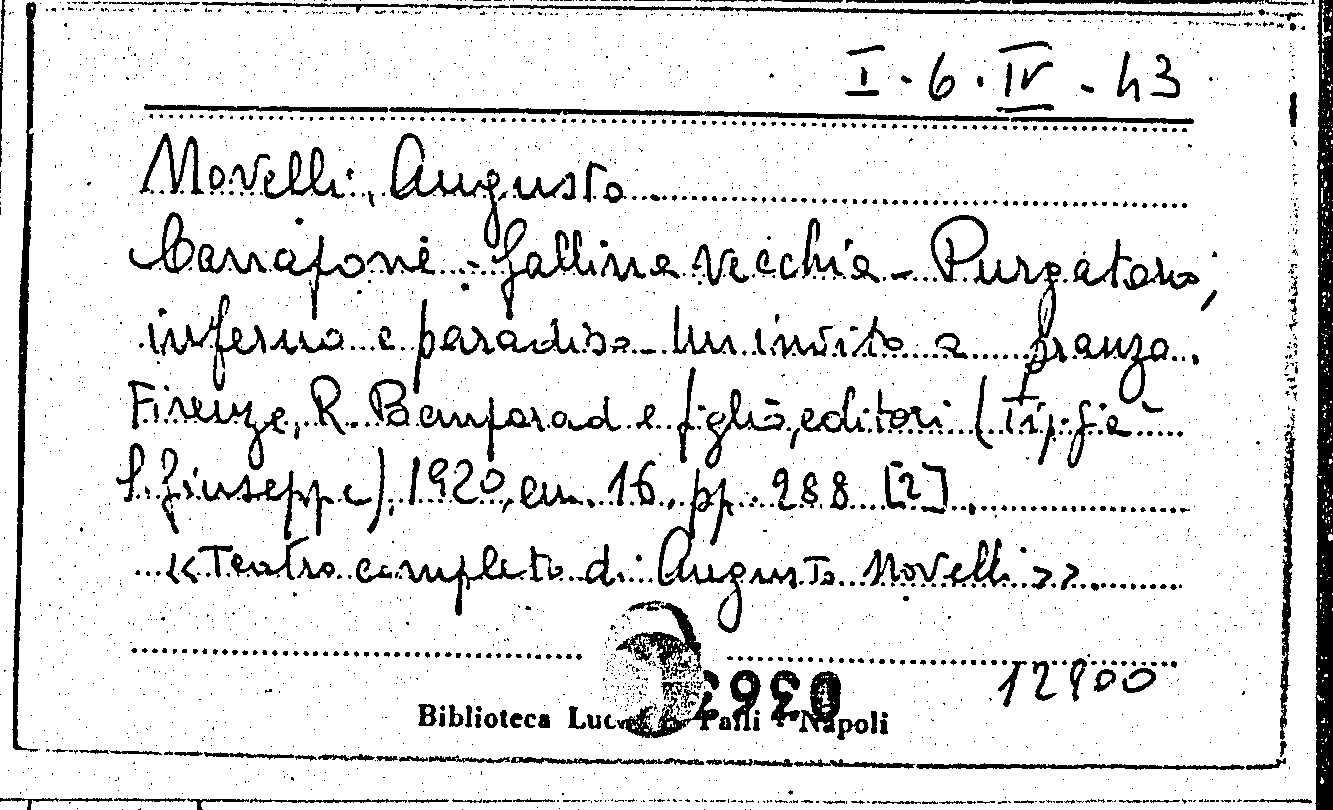 I. 6. IV - 43
Novelli, Augusto
Canapone - Gallina vecchia - Purgatorio,
inferno e paradiso - Un invito a pranzo.
Firenze, R. Bemporad e figlio, editori (Tip. già
S. Giuseppe), 1920, cm. 16, pp. 288 [2].
«Teatro completo di Augusto Novelli».
12900
Biblioteca Napoli